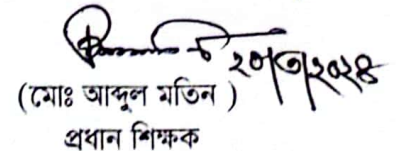 ২০/৩/২০২৪
(মোঃ আব্দুল মতিন )
প্রধান শিক্ষক